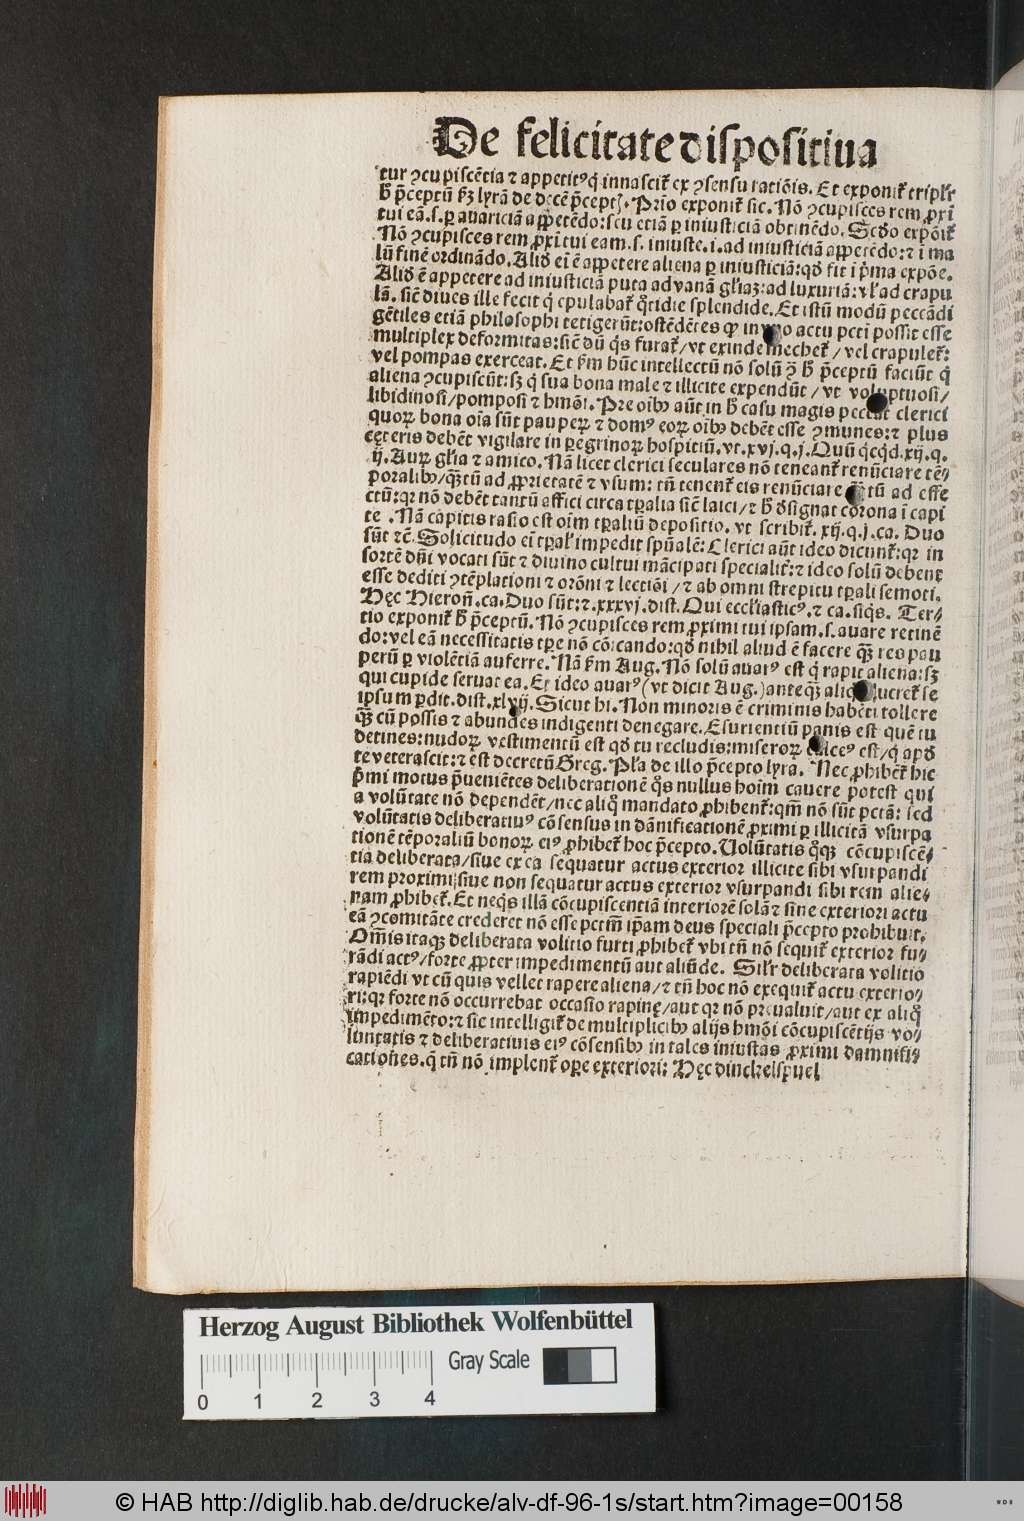 De felicitate dispositiua
tur ꝯcupiscẽtia ⁊ appetitꝰ q̇ innascit᷑ ex ꝯsensu ratiõis. Et exponit᷑ triplr̃
h̄ p̃ceptũ ẜm lyrã de decẽ p̃ceptꝭ. Prĩo exponit᷑ sic. Nõ ꝯcupisces rem ꝓxĩ
tui eã.s.ꝑ auariciã appetẽdo: seu etiã ꝑ iniusticiã obtinẽdo. Scd̃o expõit᷑
Nõ ꝯcupisces rem ꝓxĩ tui eam.s. iniuste.i.ad iniusticiã appetẽdo: ⁊ ĩ ma
lũ finẽ ordinãdo. Aliđ eĩ ẽ appetere aliena ꝑ iniusticiã: qđ fit ĩ p̃ma expõe.
Aliđ ẽ appetere ad iniusticiã puta ad vanã gl̃iaꝫ: ad luxuriã: vl̃ ad crapu
lã. sic̃ diues ille fecit q̇ epulabat᷑ q̃tidie splendide. Et istũ modũ peccãdi
gẽtiles etiã philosophi tetigerũt: ostẽdẽtes ꝙ in vno actu pcti possit esse
multiplex deformitas: sic̃ dũ q̇s furat᷑ / vt exinde mechet᷑ / vel crapulet᷑:
vel pompas exerceat. Et ẜm hũc intellectũ nõ solũ ꝯ̃ h̄ p̃ceptũ faciũt q̇
aliena ꝯcupiscũt: sꝫ q̇ sua bona male ⁊ illicite expendũt / vt voluptuosi /
libidinosi / pomposi ⁊ hmõi. Pre oĩbꝰ aũt in h̄ casu magis peccãt clerici
quoꝝ bona oĩa sũt pauperꝝ ⁊ domꝰ eoꝝ oĩbꝰ debẽt esse ꝯmunes: ⁊ plus
cęteris debẽt vigilare in ꝑegrinoꝝ hospitiũ. vt.xvj.q.j. Quũ q̇cq̇d.xij.q.
ij. Auꝝ gl̃ia ⁊ amico. Nã licet clerici seculares nõ teneant᷑ renũciare tẽ-
poralibꝰ / q̃ꝫtũ ad ꝓprietatẽ ⁊ vsum: tñ tenent᷑ eis renũciare q̃ꝫtũ ad effe
ctũ: qꝛ nõ debẽt tantũ affici circa tꝑalia sic̃ laici / ⁊ h̄ đsignat corona ĩ capi
te. Nã capitis rasio est oĩm tꝑaliũ depositio. vt scribit᷑.xij.q.j.ca. Duo
sũt ⁊c̃. Solicitudo eĩ tꝑal̃ impedit spũalẽ: Clerici aũt ideo dicunt᷑: qꝛ in
sortẽ dñi vocati sũt ⁊ diuino cultui mãcipati specialit᷑: ⁊ ideo solũ debent
esse dediti ꝯtẽplationi ⁊ orõni ⁊ lectiõi / ⁊ ab omni strepitu tꝑali semoti.
Hęc Hieroñ.ca. Duo sũt: ⁊.xxxvj.dist. Qui eccl̃iasticꝰ.⁊ ca.siq̇s. Ter-
tio exponit᷑ h̄ p̃ceptũ. Nõ ꝯcupisces rem ꝓximi tui ipsam.s. auare retinẽ
do: vel eã necessitatis tꝑe nõ cõicando: qđ nihil aliud ẽ facere q̃ꝫ res pau
perũ ꝑ violẽtiã auferre. Nã ẜm Aug. Nõ solũ auarꝰ est q̇ rapit aliena: sꝫ
qui cupide seruat ea. Et ideo auarꝰ (vt dicit Aug.) anteq̃ꝫ aliq̇d lucret᷑ se
ipsum ꝑdit. dist.xlvij. Sicut hi. Non minoris ẽ criminis habẽti tollere
q̃ꝫ cũ possis ⁊ abundes indigenti denegare. Esurientiũ panis est quẽ tu
detines: nudoꝝ vestimentũ est qđ tu recludis: miseroꝝ calceꝰ est / q̇ apđ
te veterascit: ⁊ est decretũ Greg. Pl̃a de illo p̃cepto lyra. Nec ꝓhibet᷑ hic
p̃mi motus p̃ueniẽtes deliberationẽ q̊s nullus hoĩm cauere potest qui
a volũtate nõ dependẽt / nec aliq̊ mandato ꝓhibent᷑: qm̃ nõ sũt pctã: sed
volũtatis deliberatiuꝰ cõsensus in dãnificationẽ ꝓximi ꝑ illicitã vsurpa
tionẽ tẽporaliũ bonoꝝ eiꝰ ꝓhibet᷑ hoc p̃cepto. Volũtatis q̊qꝫ cõcupiscẽ-
tia deliberata / siue ex ea sequatur actus exterior illicite sibi vsurpandi
rem proximi: siue non sequatur actus exterior vsurpandi sibi rem alie-
nam ꝓhibet᷑. Et neq̇s illã cõcupiscentiã interiorẽ solã ⁊ sine exteriori actu
eã ꝯcomitãte crederet nõ esse pctm̃ ip̃am deus speciali p̃cepto prohibuit.
Om̃is itaqꝫ deliberata volitio furti ꝓhibet᷑ vbi tñ nõ sequit᷑ exterior fu-
rãdi actꝰ / forte ꝓpter impedimentũ aut aliũde. Sil̃r deliberata volitio
rapiẽdi vt cũ quis vellet rapere aliena / ⁊ tñ hoc nõ exequit᷑ actu exterio-
ri: qꝛ forte nõ occurrebat occasio rapinę / aut qꝛ nõ p̃ualuit / aut ex aliq̊
impedimẽto: ⁊ sic intelligit᷑ de multiplicibꝰ alijs hmõi cõcupiscẽtijs vo-
luntatis ⁊ deliberatiuis eiꝰ cõsensibꝰ in tales iniustas ꝓximi damnifi-
cationes. q̇ tñ nõ implent᷑ oꝑe exteriori: Hęc dinckelspuel
Herzog August Bibliothek Wolfenbüttel
Gray Scale
0 1 2 3 4
© HAB http://diglib.hab.de/drucke/alv-df-96-1s/start.htm?image=00158